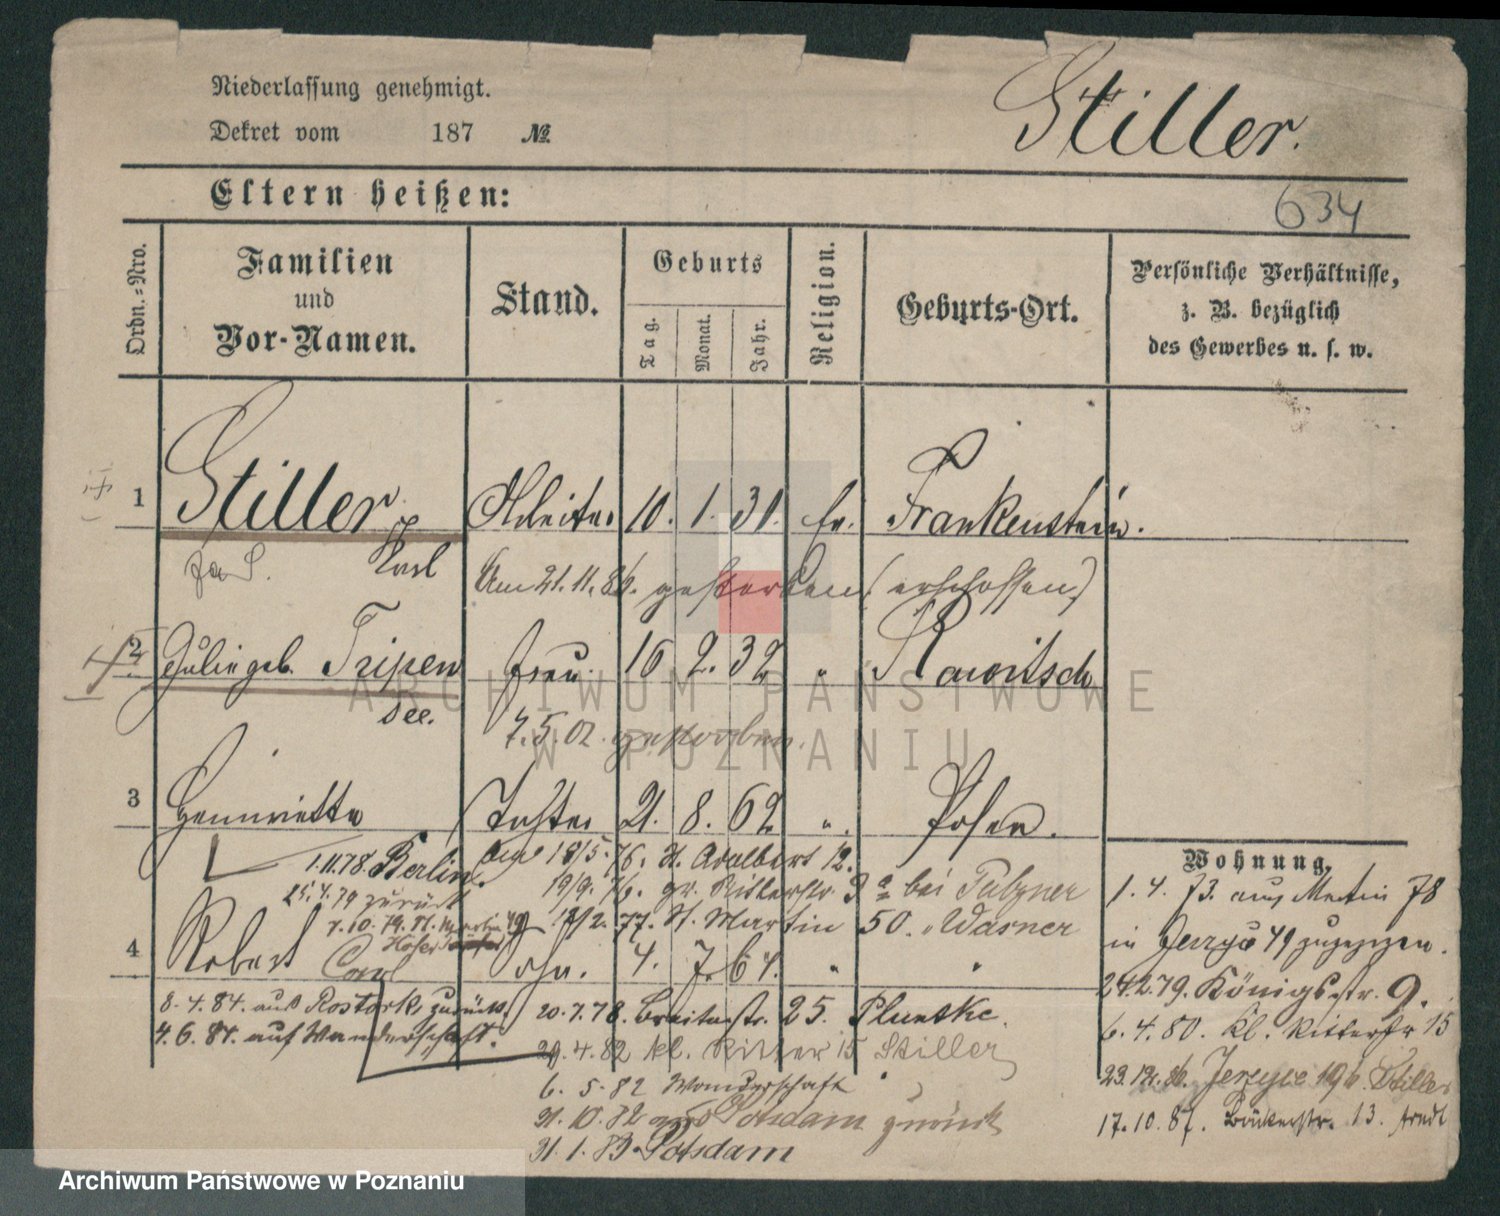 Niederlassung genehmigt.
Dekret vom 187 №
Stiller.
634
Eltern heißen:
Ordn.-Nro.
Familien
und
Vor-Namen.
Stand.
Geburts
Tag.
Monat.
Jahr.
Religion.
Geburts-Ort.
Persönliche Verhältnisse,
z. B. bezüglich
des Gewerbes u. s. w.
1 Stiller Arbeiter 10. 1. 31. Frankenstein.
Karl
Am 21.11.86. gestorben (erschossen)
2 Julie geb. Tripen Frau 16 2. 32 " Rawitsch
7.5.02. gestorben.
3 Henriette Tochter 21. 8. 62 " Posen.
1.11.78. Berlin.
25.4.79 zurück
18/5. 76. St. Adalbert 12.
19/9. 76. gr. Ritterstr. 9 a bei Pulzner
7.10.79. St. Martin 49
18/2. 77. St. Martin 50. " Wasner
4 Robert Carl Sohn. 4. 7. 64. " "
8.4.84. aus Rostock zurück.
4.6.84. auf Wanderschaft.
20.7.78. Breitestr. 25. Plunske.
29.4.82 kl. Ritter 15 Stiller
6.5.82 Wanderschaft
21.10.82 aus Potsdam zurück
31.1.83. Potsdam
Wohnung.
1.4.73. aus Martin 78
in Jerzyce 49 zugezogen.
24.2.79. Königsstr. 9.
6.4.80. kl. Ritterstr 15
23.12.86. Jerzyce 196. Stiller
17.10.87. Bäckerstr. 13. Arndt
ARCHIWUM PAŃSTWOWE
W POZNANIU
Archiwum Państwowe w Poznaniu